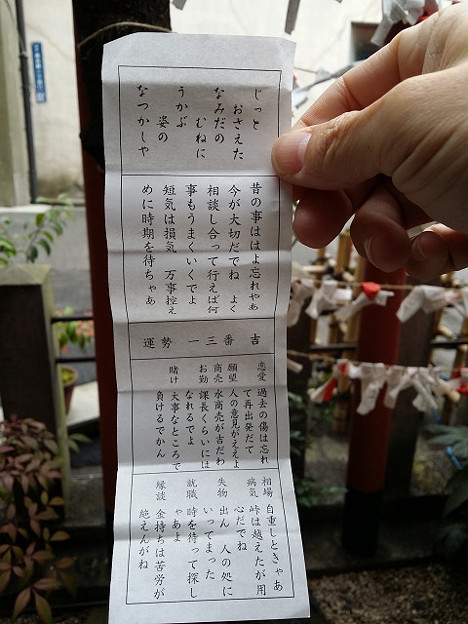 じっと
おさえた
なみだの
むねに
うかぶ
姿の
なつかしや
昔の事ははよ忘れやぁ
今が大切だでね　よく
相談し合って行えば何
事もうまくいくでよ
短気は損気　万事控え
めに時期を待ちゃあ
吉　番三一　勢運
恋愛　過去の傷は忘れ
て再出発だて
願望　人の意見がええよ
商売　水商売が吉だわ
お勤　課長くらいには
なれるでよ
賭け　大事なところで
負けるでかん
相場　自重しときゃあ
病気　峠は越えたが用
心だでね
失物　出ん　人の処に
いってまった
就職　時を待って探し
ゃあよ
縁談　金持ちは苦労が
絶えんがね